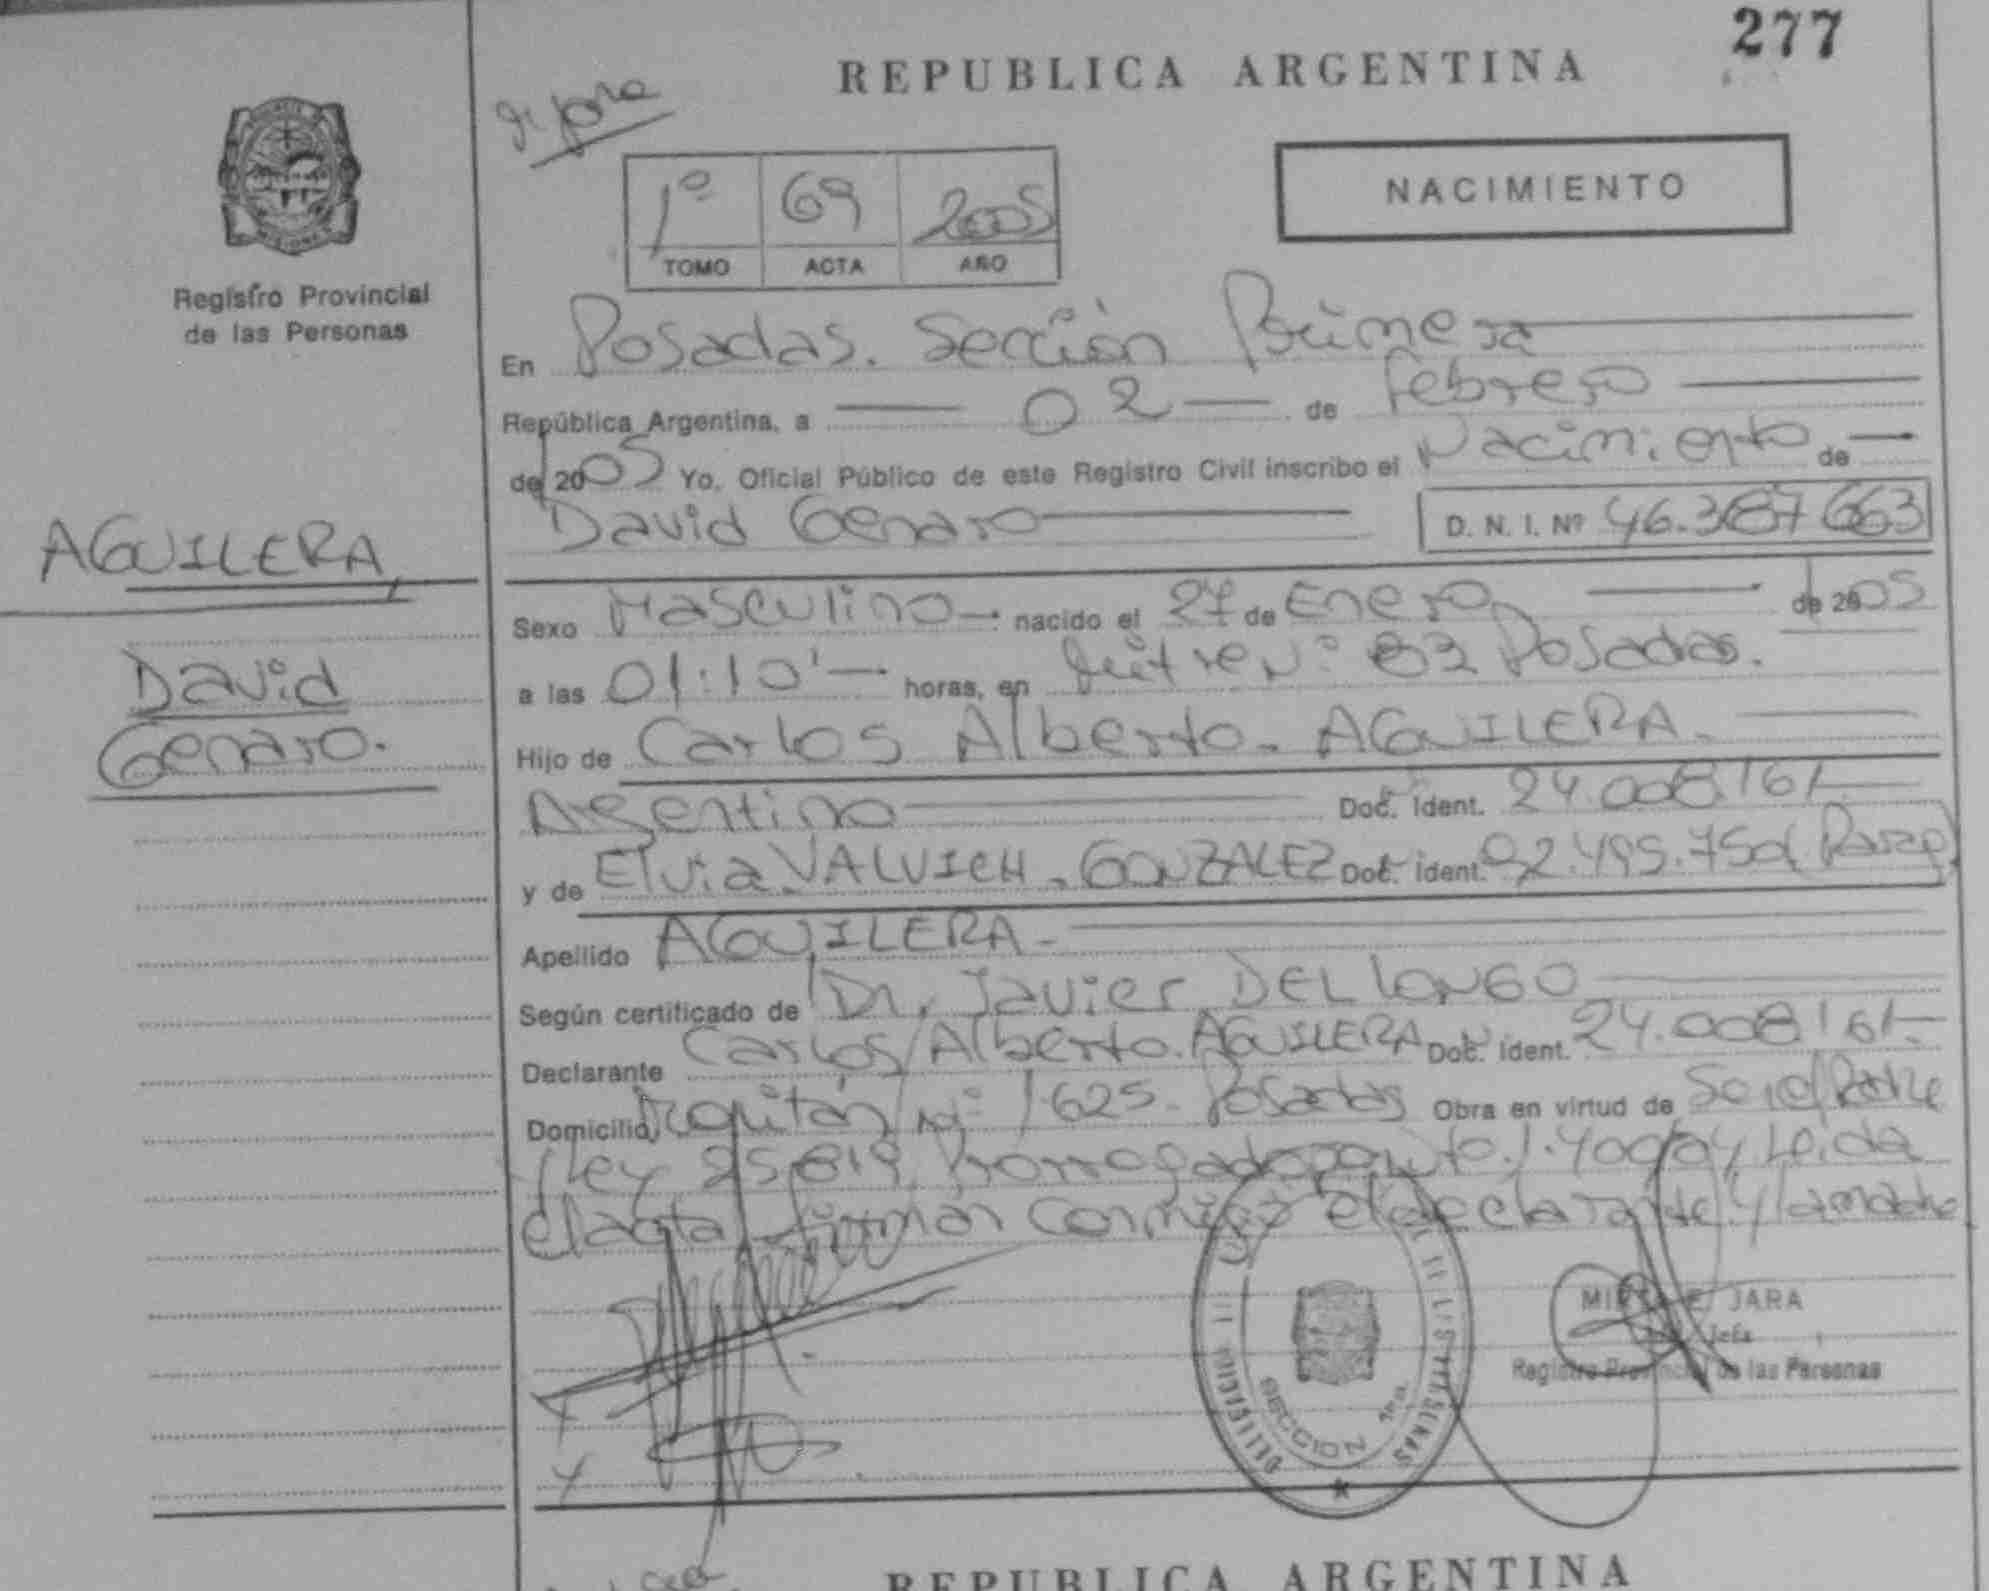 277
REPUBLICA ARGENTINA
NACIMIENTO
1º 69 2005
TOMO ACTA AÑO
Registro Provincial
de las Personas
En Posadas. Sección Primera
República Argentina, a 02 de febrero
de 2005 Yo, Oficial Público de este Registro Civil inscribo el Nacimiento de
David Genaro D. N. I. Nº 46.387663
AGUILERA,
David
Genaro.
Sexo Masculino nacido el 27 de Enero de 2005
a las 01:10' horas, en Mitre Nº 82 Posadas.
Hijo de Carlos Alberto. AGUILERA.
Argentino Doc. Ident. 24.008161
y de Elvia VALVICH. GONZALEZ Doc. Ident. 92.495.750
Apellido AGUILERA
Según certificado de Dr. Javier DEL LONGO
Declarante Carlos Alberto. AGUILERA Doc. Ident. 24.008161
Domicilio Nº 1625. Posadas Obra en virtud de Ser el Padre
Ley 25.819 Prorrogado por Leida
el acta firman conmigo el declarante y la madre
JARA
Jefa
Registro Provincial de las Personas
SECCION 1ra.
REPUBLICA ARGENTINA